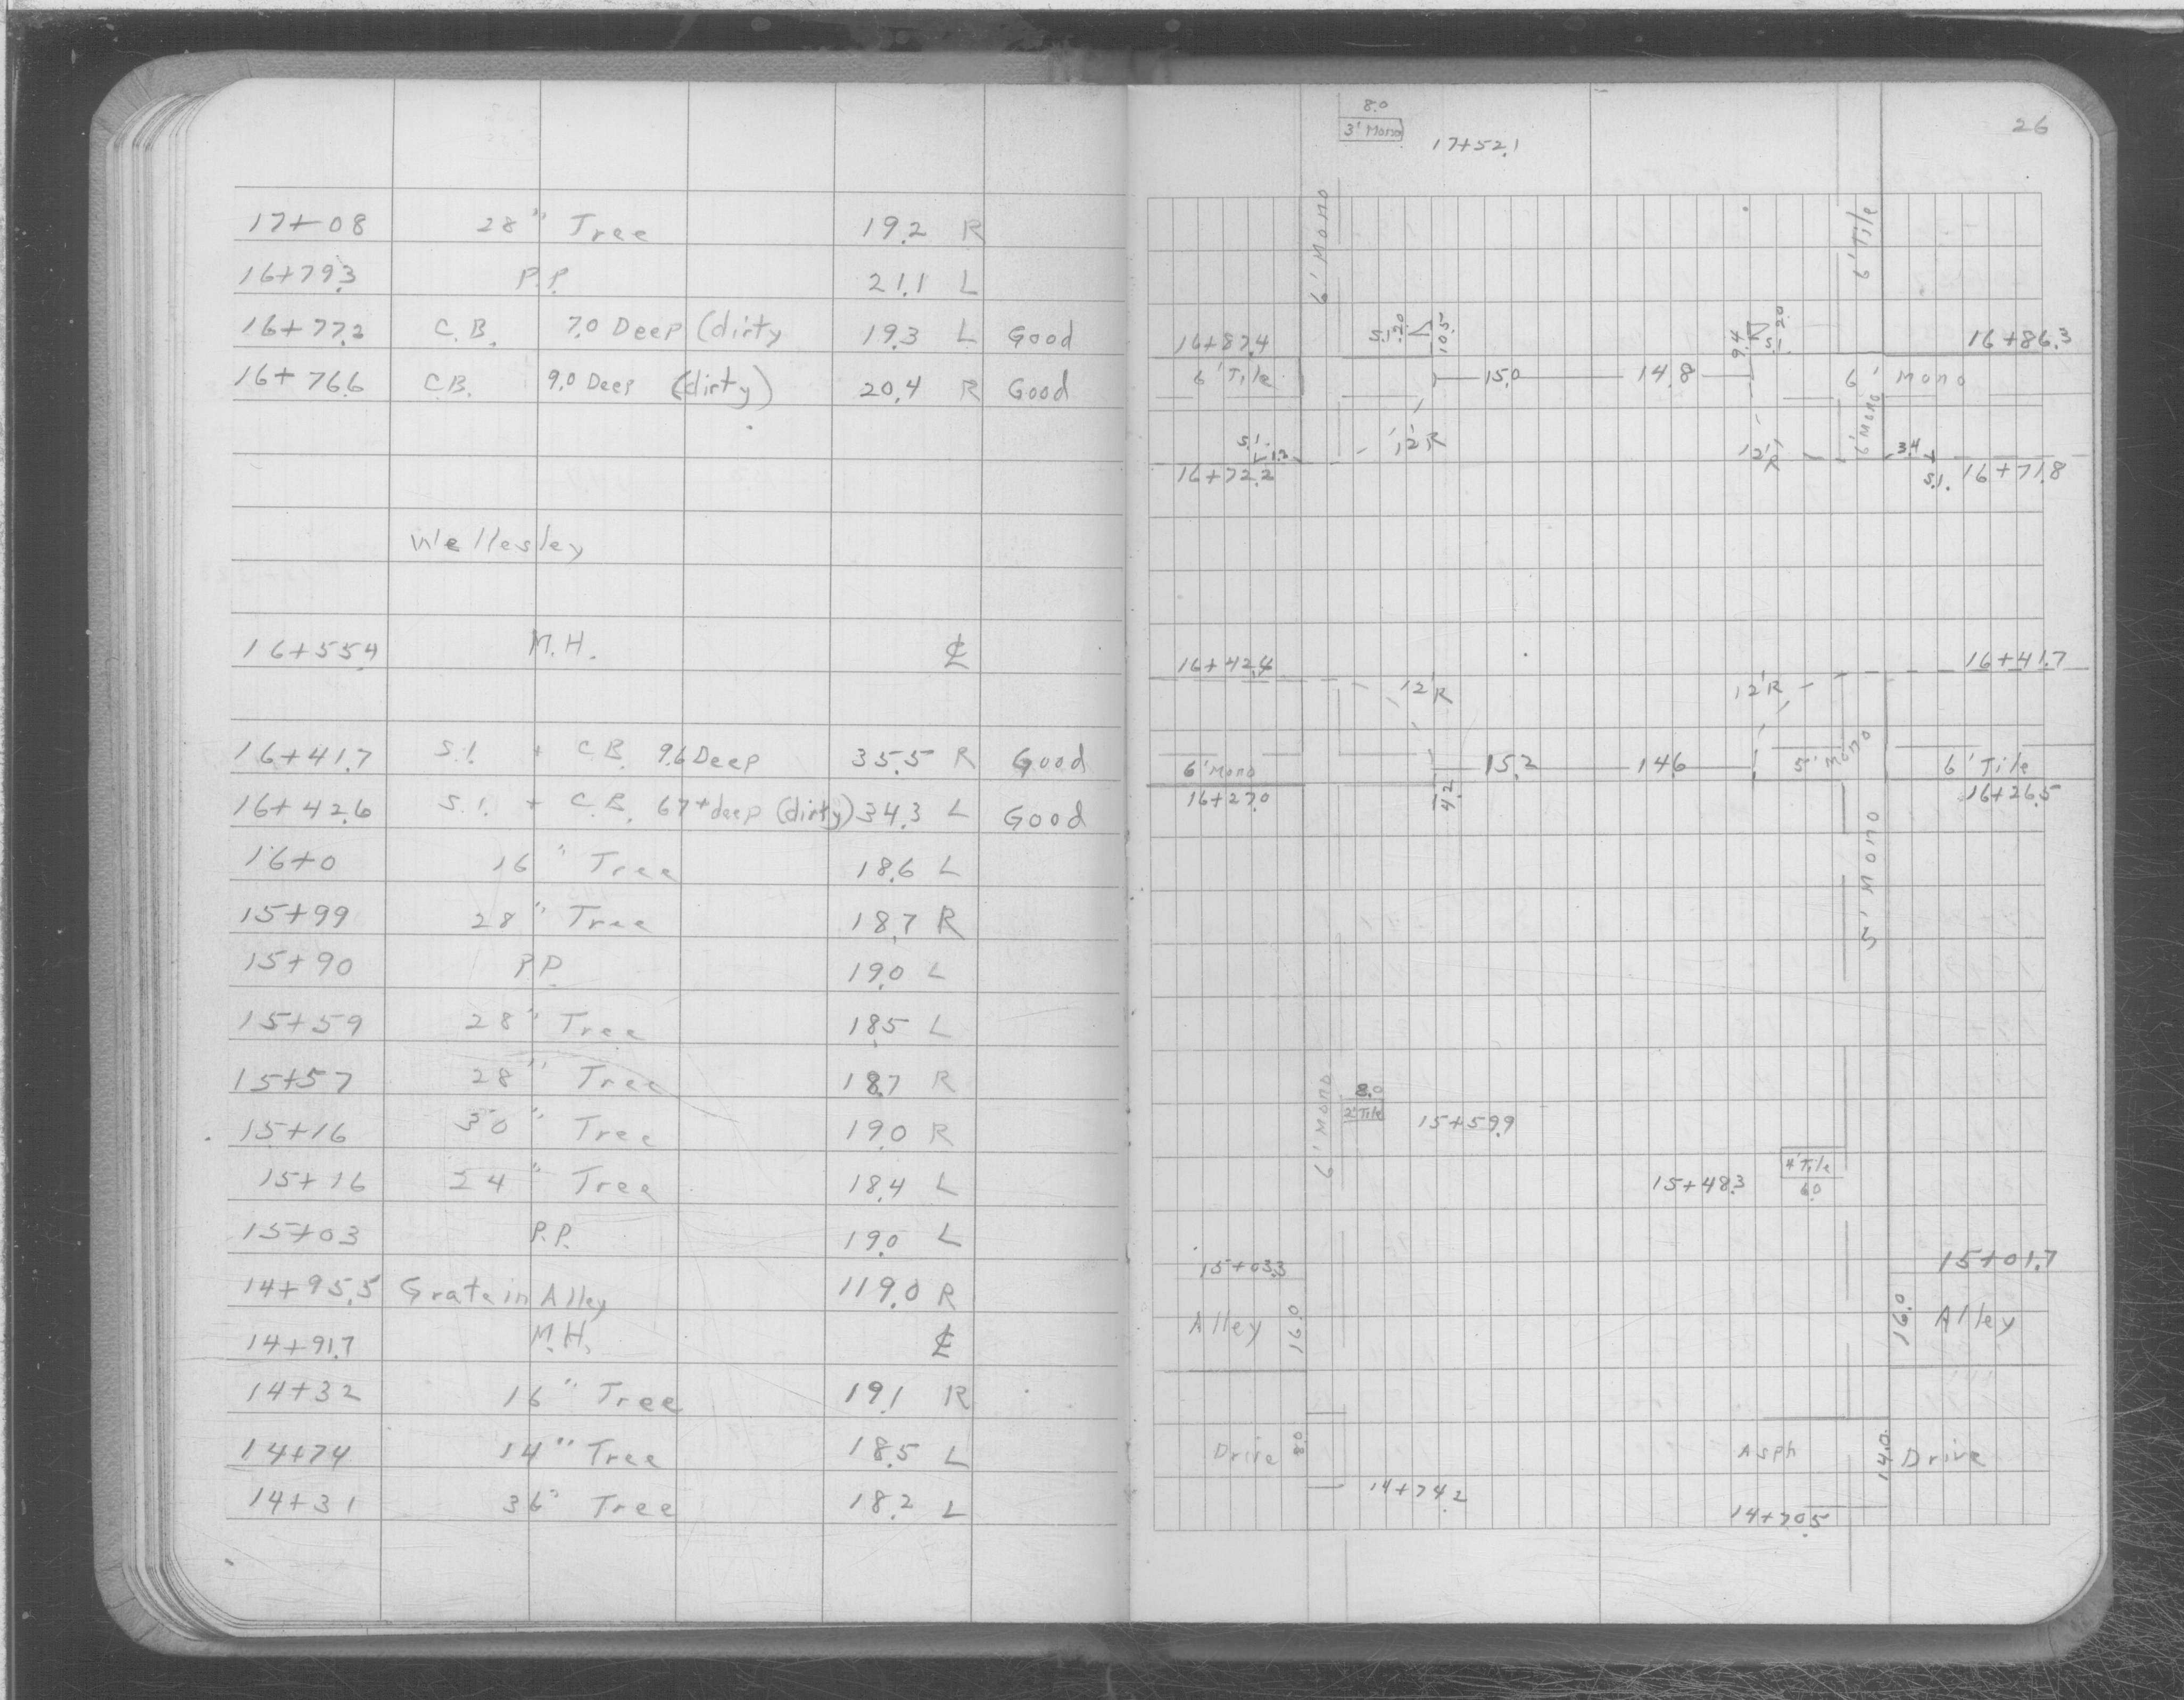 17+08 28" Tree 19.2 R
16+79.3 P.P. 21.1 L
16+77.2 C.B. 7.0 Deep (dirty 19.3 L Good
16+76.6 C.B. 9.0 Deep (dirty) 20.4 R Good
Wellesley
16+55.4 M.H. ℄
16+41.7 S.I. + C.B. 9.6 Deep 35.5 R Good
16+42.6 S.I. + C.B. 6.7+ deep (dirty) 34.3 L Good
16+0 16" Tree 18.6 L
15+99 28" Tree 18.7 R
15+90 P.P. 19.0 L
15+59 28" Tree 18.5 L
15+57 28" Tree 18.7 R
15+16 30" Tree 19.0 R
15+16 24" Tree 18.4 L
15+03 P.P. 19.0 L
14+95.5 Grate in Alley 119.0 R
14+91.7 M.H. ℄
14+32 16" Tree 19.1 R
14+74 14" Tree 18.5 L
14+31 36" Tree 18.2 L
26
8.0
3' Mono
17+52.1
6' Mono
6' Tile
16+87.4 S.I. 2.0 10.5 9.4 S.I. 2.0 16+86.3
6' Tile 15.0 14.8 6' Mono
6' Mono
S.I. 1.2 12'R 12'R 3.4
16+72.2 S.I. 16+71.8
16+42.4 16+41.7
12'R 12'R
6' Mono 15.2 14.6 5' Mono 6' Tile
16+27.0 4.2 16+26.5
5' Mono
6' Mono
8.0
2' Tile 15+59.9
4' Tile
15+48.3 6.0
15+03.3 15+01.7
Alley 16.0 16.0 Alley
Drive 8.0 Asph 14.0 Drive
14+74.2
14+70.5